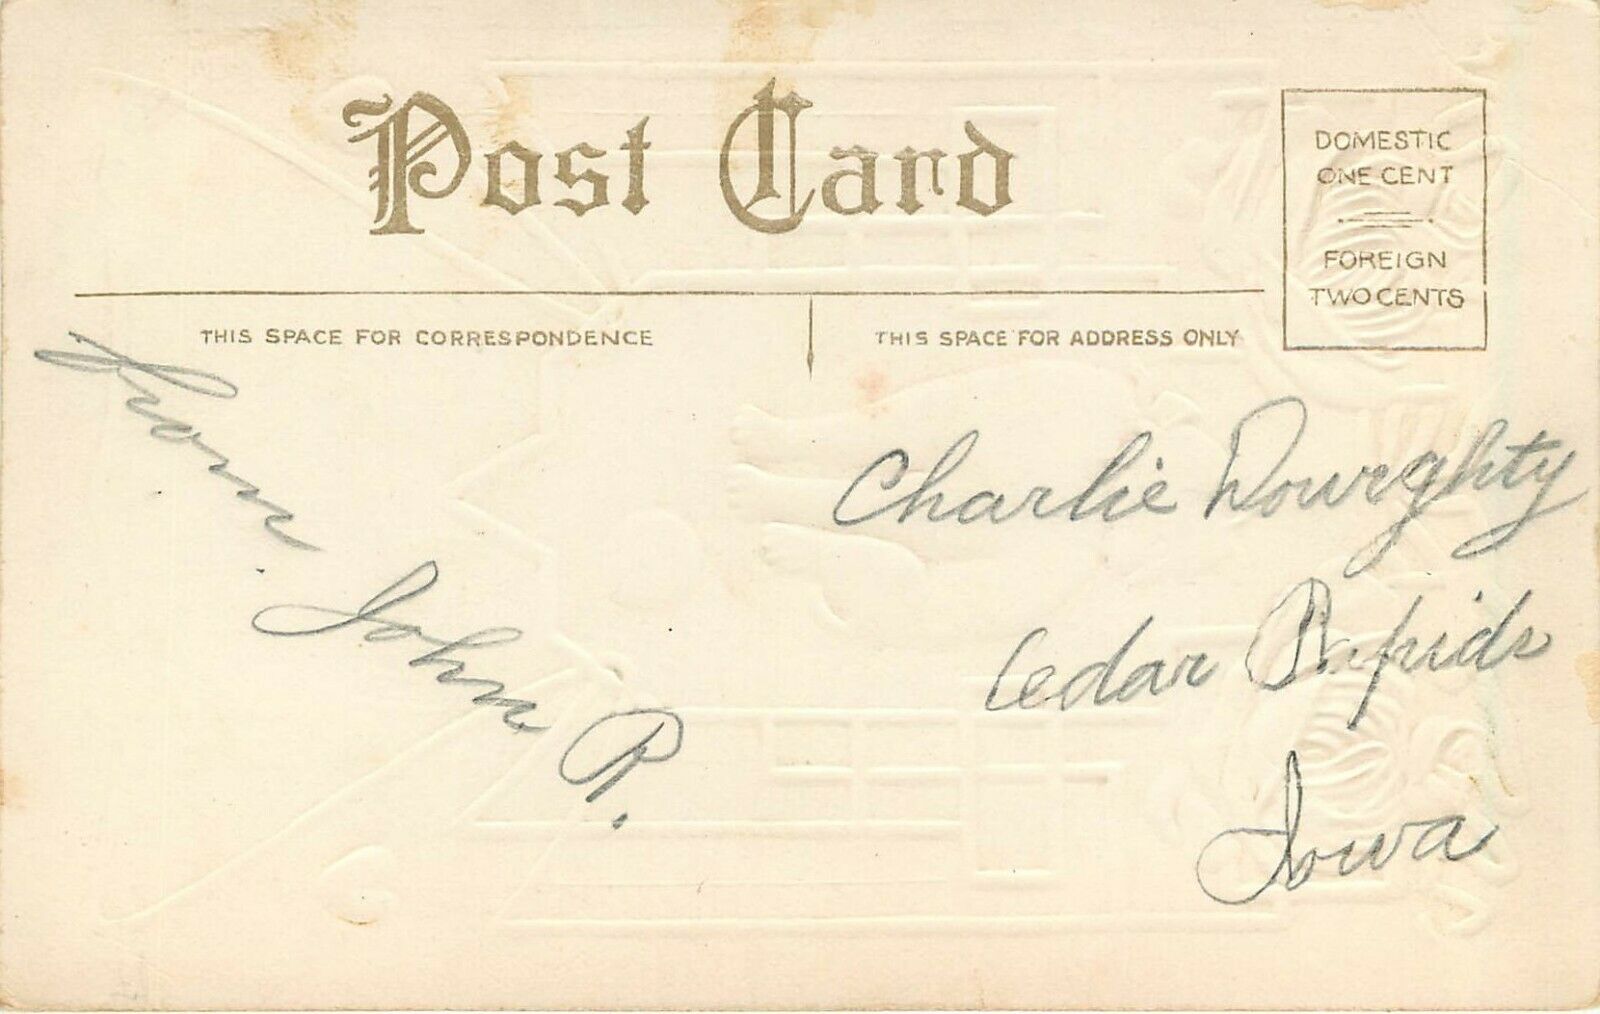 Post Card
DOMESTIC
ONE CENT
FOREIGN
TWO CENTS
THIS SPACE FOR CORRESPONDENCE
THIS SPACE FOR ADDRESS ONLY
from
John R.
Charlie Dourghty
Cedar Rapids
Iowa